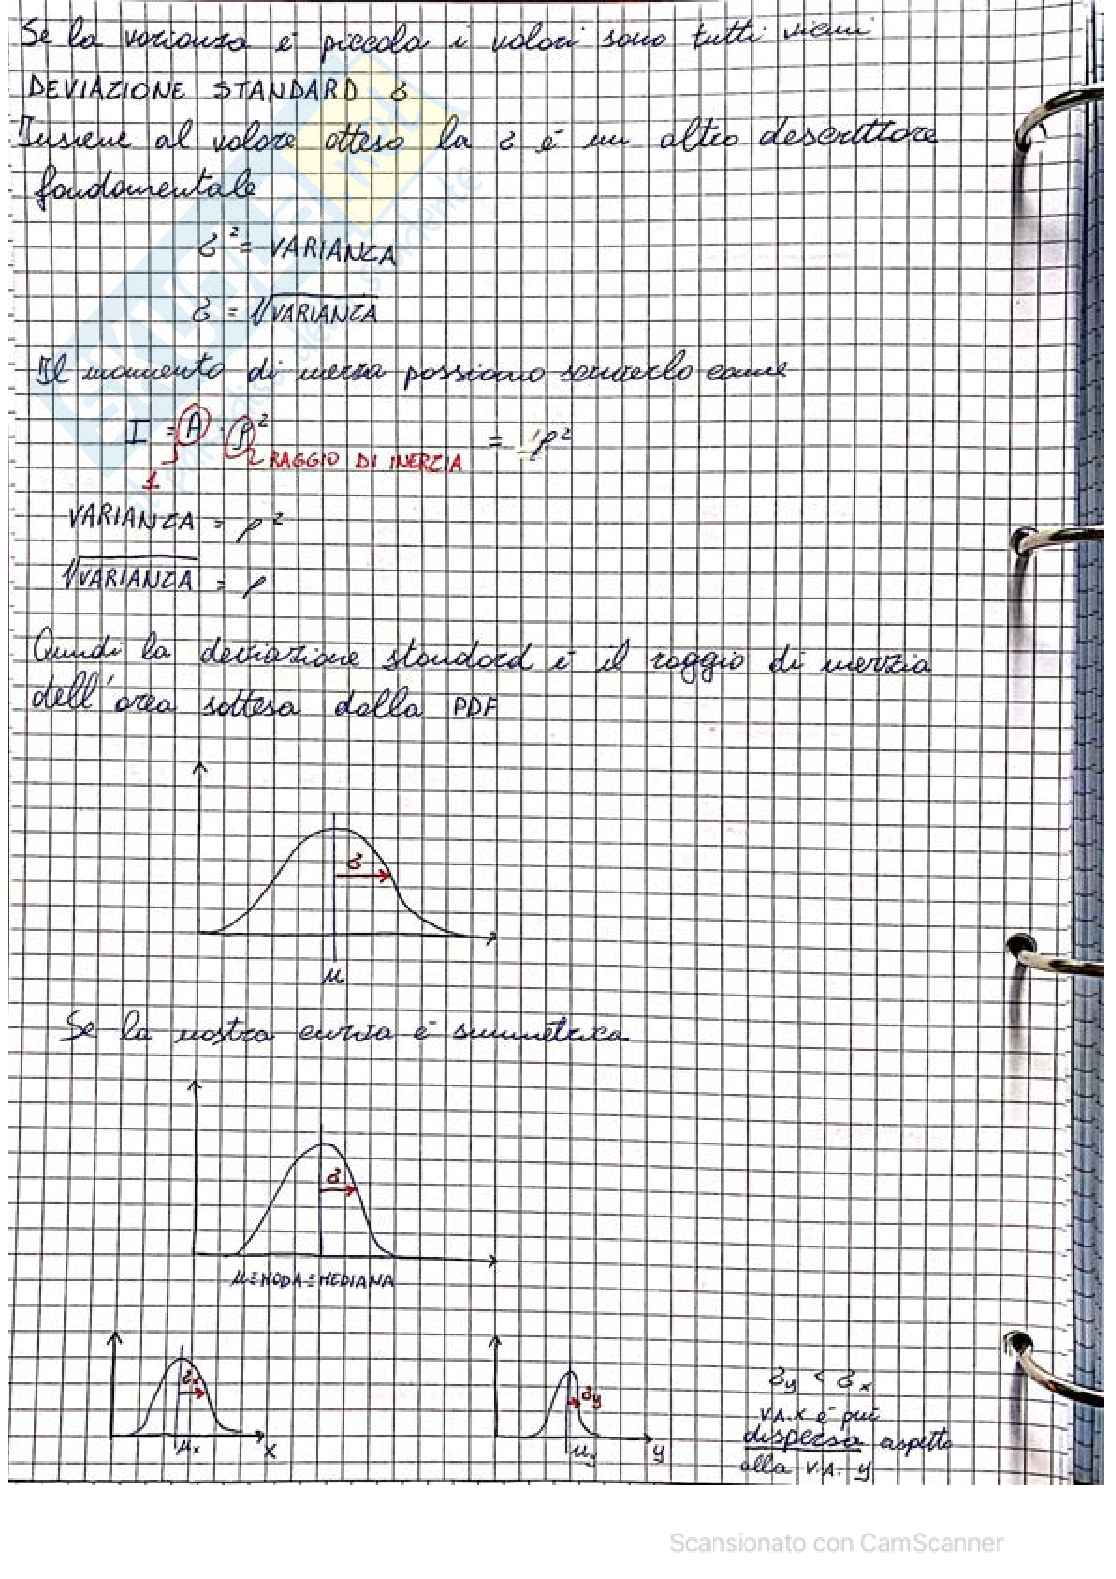 Se la varianza è piccola i valori sono tutti vicini
DEVIAZIONE STANDARD σ
Insieme al valore atteso la σ è un altro descrittore
fondamentale
σ² = VARIANZA
σ = √VARIANZA
Il momento di inerzia possiamo scriverlo come
I = A · ρ² = 1·ρ²
1 RAGGIO DI INERZIA
VARIANZA = ρ²
√VARIANZA = ρ
Quindi la deviazione standard è il raggio di inerzia
dell'area sottesa dalla PDF
σ
μ
Se la nostra curva è simmetrica
σ
μ=MODA=MEDIANA
σx
μx x
σy
μy y
σy < σx
V.A. X è più
dispersa aspetto
alla V.A. y
Scansionato con CamScanner